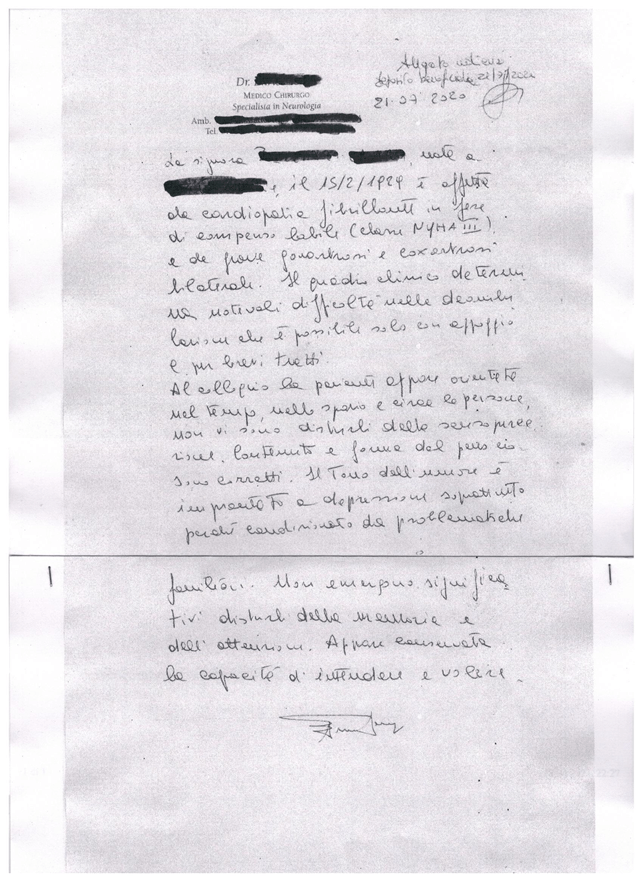 Allegato
Dr.
MEDICO CHIRURGO
Specialista in Neurologia
21-07 2020
Amb.
Tel.
La signora , nata a
, il 15/2/1929 è affetta
da cardiopatia fibrillante in fase
di compenso labile (classe NYHA III)
e da grave gonartrosi e coxartrosi
bilaterale. Il quadro clinico determi
na notevoli difficoltà nella deambu
lazione che è possibile solo con appoggio
e per brevi tratti.
Al colloquio la paziente appare orientata
nel tempo, nello spazio e circa le persone,
non vi sono disturbi della senso perce
zione. Contenuto e forma del pensiero
sono corretti. Il tono dell'umore è
improntato a depressione soprattutto
perché condizionato da problematiche
familiari. Non emergono significa
tivi disturbi della memoria e
dell'attenzione. Appare conservata
la capacità di intendere e volere.